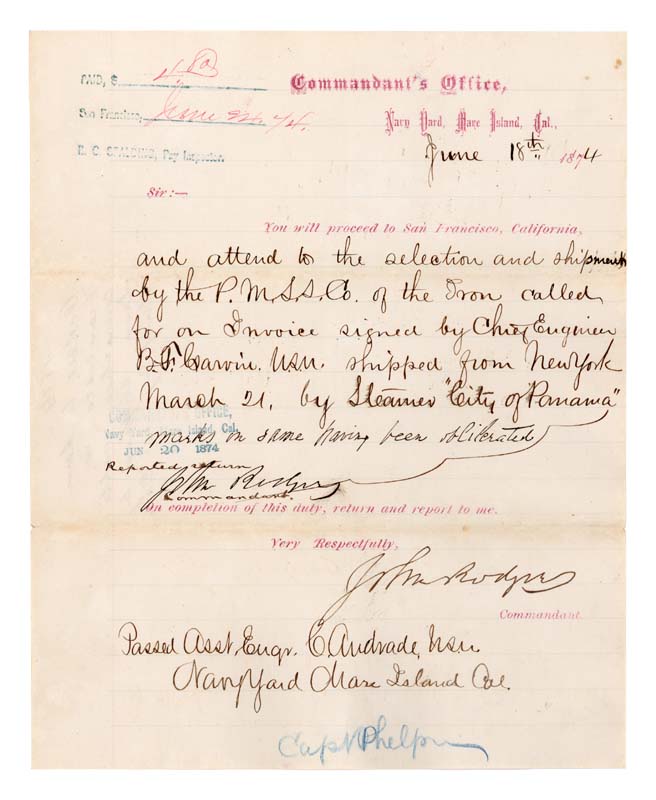 PAID, $ 4 80
San Francisco, June 22. 74.
E. C. SPALDING, Pay Inspector.
Commandant's Office,
Navy Yard, Mare Island, Cal.,
June 18th 1874
Sir:—
You will proceed to San Francisco, California,
and attend to the selection and shipment
by the P. M. S. S. Co. of the Iron called
for on Invoice signed by Chief Engineer
B. F. Garvin. USN. shipped from New York
March 21, by Steamer "City of Panama"
marks on same having been obliterated
OFFICE,
Navy Yard, Mare Island, Cal.
JUN 20 1874
Reported return
John Rodgers
Commandant.
On completion of this duty, return and report to me.
Very Respectfully,
John Rodgers
Commandant
Passed Asst. Engr. C. Andrade, USN
Navy Yard Mare Island Cal.
Capt Phelps